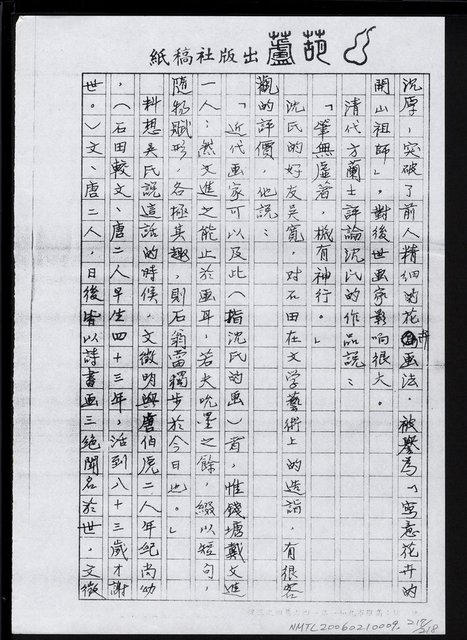 紙稿社版出蘆葫
沉厚,突破了前人精細的花卉画法,被譽為「寫意花卉的
開山祖師」,對後世画家影响很大。
清代方蘭士評論沈氏的作品說:
「筆無虛著,機有神行。」
沈氏的好友吳寬,对石田在文学藝術上的造詣,有很客
觀的評價,他說:
「近代画家可以及此(指沈氏的画)者,惟錢塘戴文進
一人;然文進之能止於画耳,若夫吮墨之餘,綴以短句,
隨物賦形,各極其趣,則石翁當獨步於今日也。」
料想吳氏說這話的時候,文徵明與唐伯虎二人年紀尚幼
,(石田較文、唐二人早生四十三年,活到八十三歲才謝
世。)文、唐二人,日後皆以詩書画三絕聞名於世,文徵
NMTL20060210009. 218/218